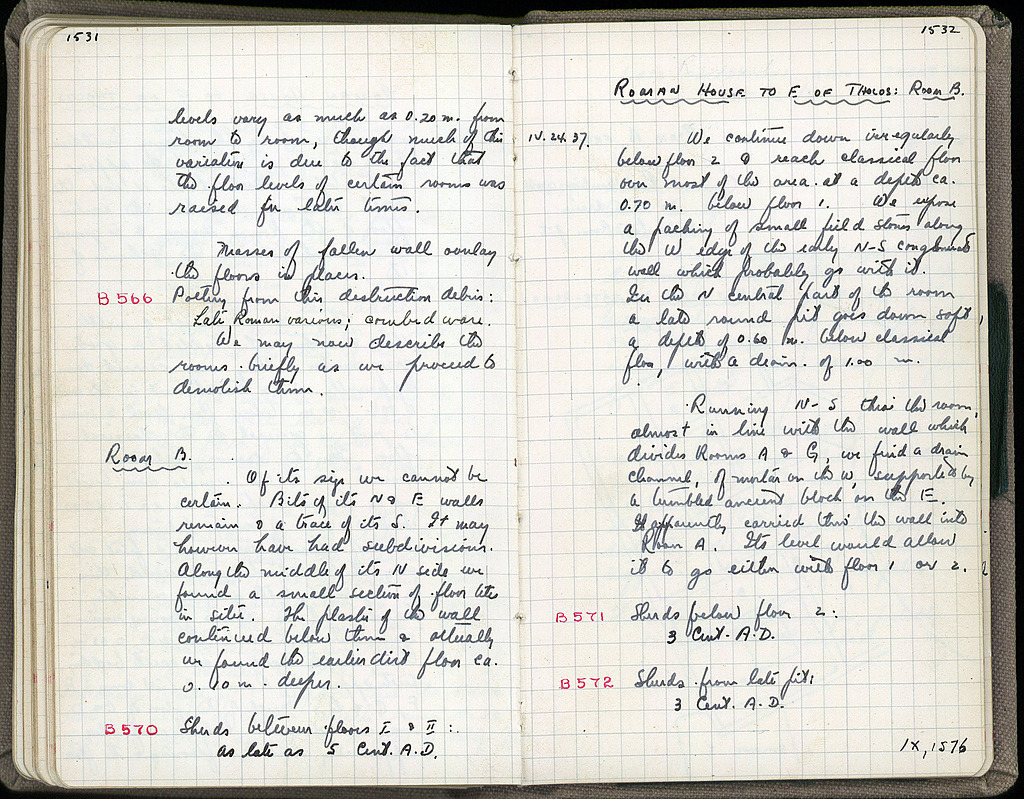 1531
levels vary as much as 0.20 m. from
room to room, though much of this
variation is due to the fact that
the floor levels of certain rooms was
raised in later times.
Masses of fallen wall overlay
the floors in places.
B 566 Pottery from this destruction debris:
Late Roman various; combed ware.
We may now describe the
rooms briefly as we proceed to
demolish them.
Room B.
Of its size we cannot be
certain. Bits of its N & E walls
remain & a trace of its S. It may
however have had subdivisions.
Along the middle of its N side we
found a small section of floor tiles
in situ. The plaster of the wall
continued below them & actually
we found the earlier dirt floor ca.
0.10 m. deeper.
B 570 Sherds between floors I & II:
as late as 5 Cent. A.D.
1532
ROMAN HOUSE TO E OF THOLOS: ROOM B.
IV.24.37. We continue down irregularly
below floor 2 & reach classical floor
over most of the area at a depth ca.
0.70 m. below floor 1. We expose
a packing of small field stones along
the W edge of the early N-S conglomerate
wall which probably go with it.
In the N central part of the room
a late round pit goes down soft,
a depth of 0.60 m. below classical
floor, with a diam. of 1.00 m.
Running N-S thru the room,
almost in line with the wall which
divides Rooms A & G, we find a drain
channel, of mortar on the W, supported by
a tumbled ancient block on the E.
It apparently carried thru the wall into
Room A. Its level would allow
it to go either with floor 1 or 2.
B 571 Sherds below floor 2:
3 Cent. A.D.
B 572 Sherds from late pit:
3 Cent. A.D.
IX, 1576